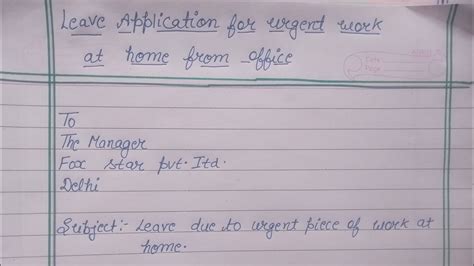 Leave Application for urgent work
at home from office
Date
Page
To
The Manager
Fox star pvt. Itd.
Delhi
Subject:- Leave due to urgent piece of work at
home.